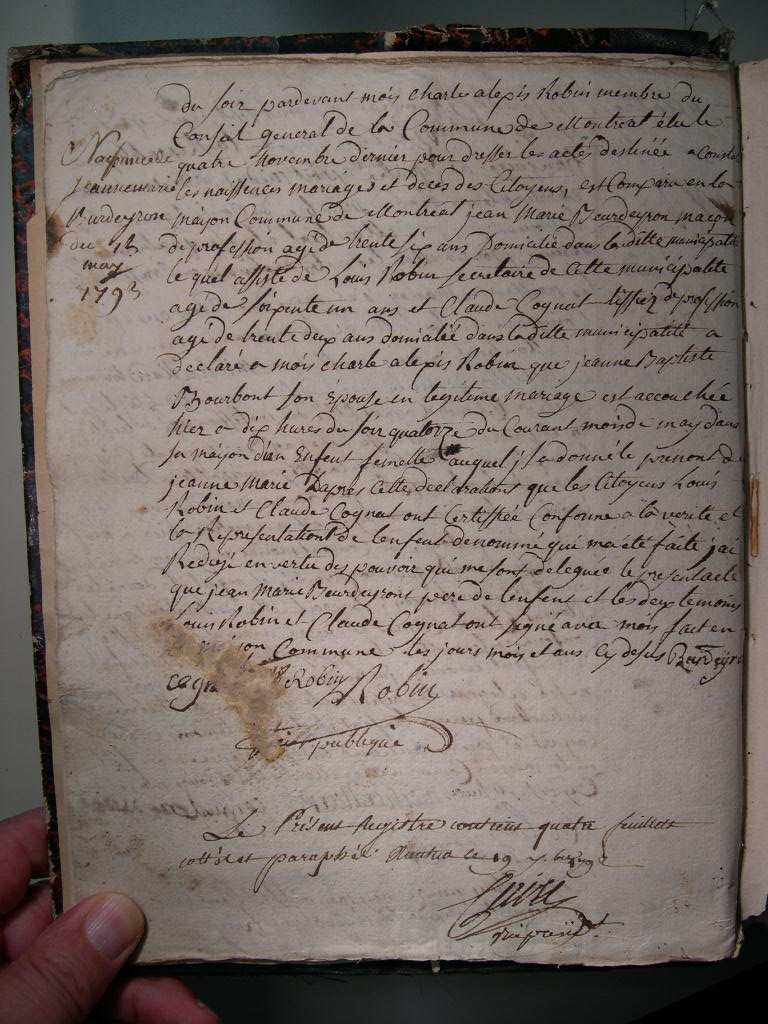 du soir pardevans mois charle alexis Robin membre du
Conseil general de la Commune de Montreal élu le
quatre Novembre dernier pour dresser les actes destinée a Constat
les naissences mariages et deces des Citoyens, est Comparu en la
maison Commune de Montreal jean Marie Bourdeyron maçon
de profession agé de trente six ans Domicilié dans la ditte municipalité
le quel assisté de Louis Robin secretaire de Cette municipalité
agé de soixente un ans et Claude Cognat tissier de profession
agé de trente deux ans domicilié dans la ditte municipalité a
declaré a mois charle alexis Robin que jeanne Baptiste
Bourbont son Épouse en legitime mariage est accouchée
hier a dix hures du soir quatorze du Courant mois de may dans
sa maison d'un Enfent femelle auquel jl a donné le prenont de
jeanne Marie D'apres Cette declarations que les Citoyens Louis
Robin et Claude Cognat ont Certiffiée Conforme a la verité et
la Representation de lenfent denommé qui ma été faite j'ai
Redigé en vertu des pouvoir qui me sont delegues le present acte
que jean Marie Bourdeyront pere de lenfent et les deux temoins
Louis Robin et Claude Cognat ont signé avec mois fait en
maison Commune les jours mois et ans Cy desus Burdeyron
Robin Robin
publique
Naissance de
jeanne marie
Burdeyron
du
may
1793
Le Présent Registre contient quatre feuillets
cottés et paraphés Nantua le 19